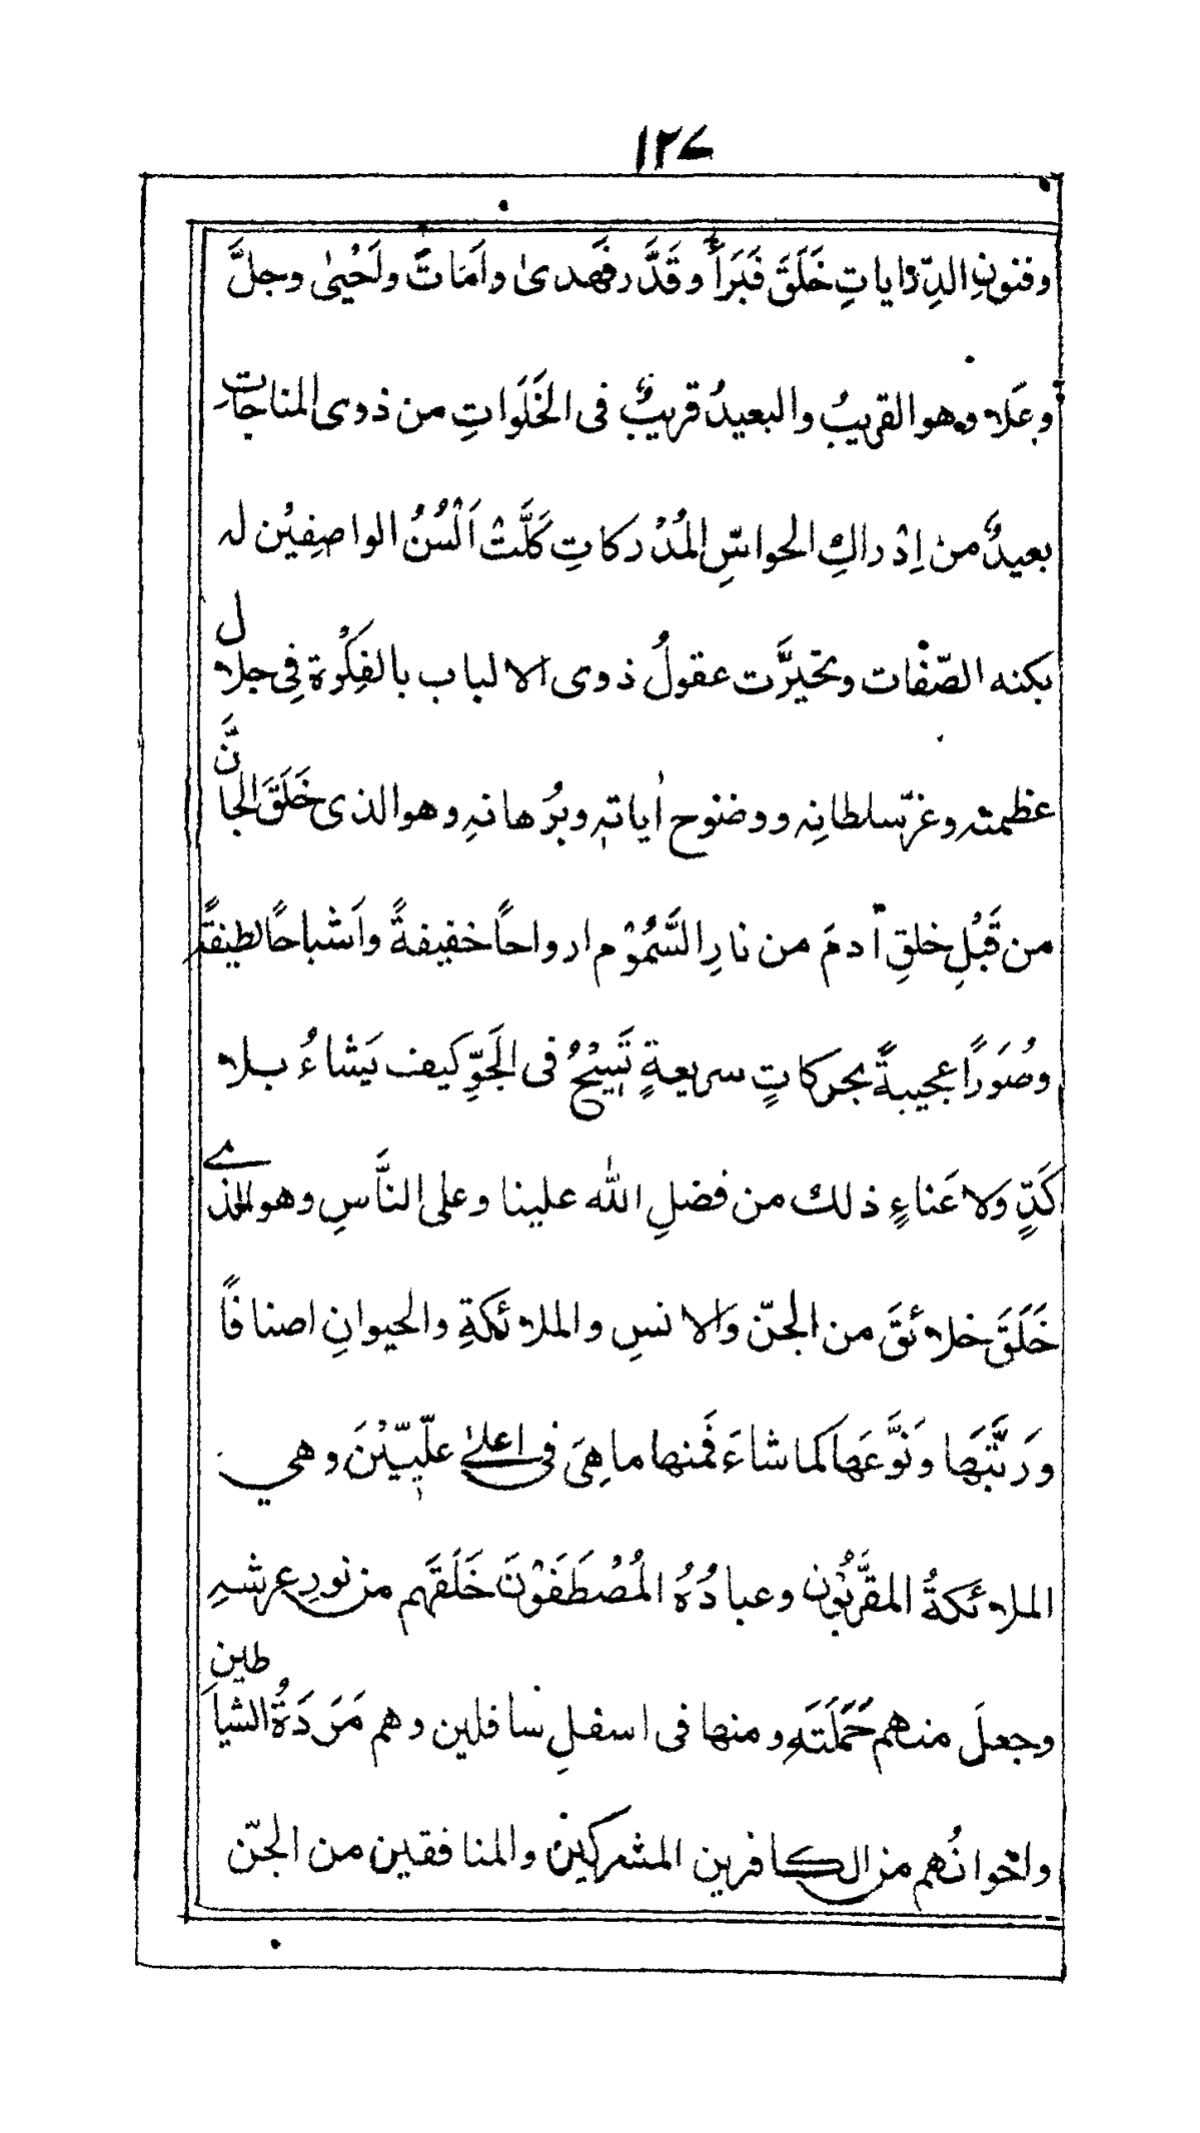 ١٢٧
وفنونِ الدِّرَاياتِ خَلَقَ فَبَرَأَ وقَدَّر فَهَدىٰ واَمَاتَ واَحْيىٰ وجلَّ
وعَلا وهو القريبُ والبعيدُ قريبٌ فى الخَلَواتِ من ذوى المناجات
بعيدٌ من اِدْراكِ الحواسِّ المُدْركاتِ كَلَّتْ اَلْسُنُ الواصِفِيْن له
بكنه الصّفات وتحيَّرت عقولُ ذوى الالباب بالفِكْرة فِى جلال
عظمته وعزّ سلطانِه ووضوح اٰياتهٖ وبُرْهانهِ وهو الذى خَلَقَ الجانَّ
من قَبْلِ خلقِ آدمَ من نارِ السَّمُوْمِ ارواحاً خفيفةً واَشْباحًا لطيفةً
وصُوَراً عجيبةً بحركاتٍ سريعةٍ تَسِيْحُ فى الجَوِّ كيف يَشاءُ بلا
كَدٍّ ولا عَناءٍ ذلك من فضلِ الله علينا وعلى النَّاسِ وهو الذے
خَلَقَ خلائقَ من الجنّ والانسِ والملائكةِ والحيوانِ اصنافًا
ورَتَّبَهَا ونَوَّعَهَا كما شاءَ فَمنها ما هِىَ فى اعلےٰ علّيِّيْنَ وهي
الملائكةُ المقرَّبُون وعبادُهُ المُصْطَفَوْنَ خَلَقَهم من نورِ عرشهِ
وجعلَ منهم حَمَلَتَه ومنها فى اسفلِ سافلين وهم مَرَدَةُ الشياطين
واخوانُهم من الكافرين المشركين والمنافقين من الجنّ